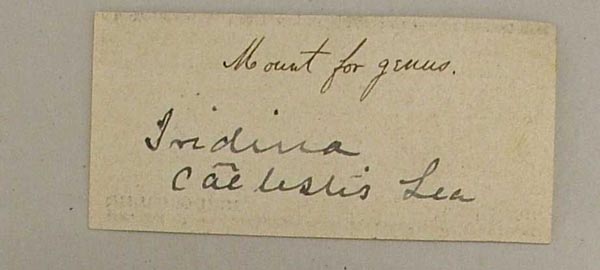 Mount for genus.
Iridina
caelestis Lea